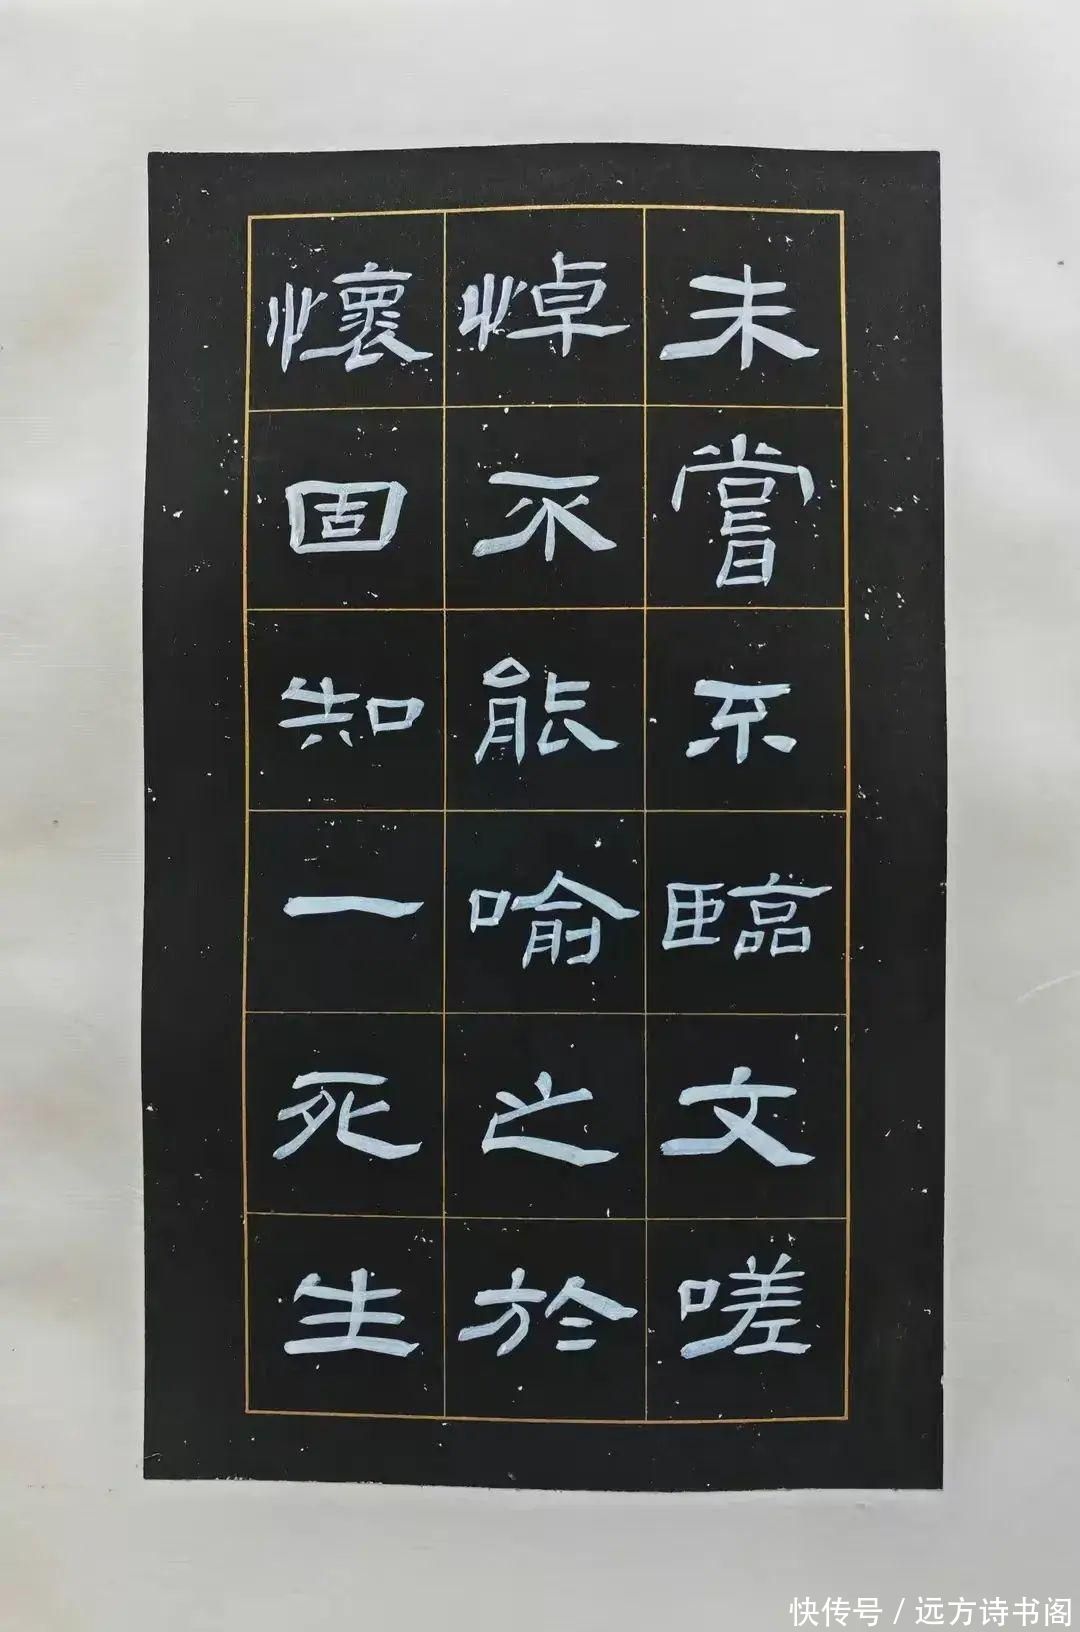 未嘗不臨文嗟
悼不能喻之於
懷固知一死生
快传号 / 远方诗书阁